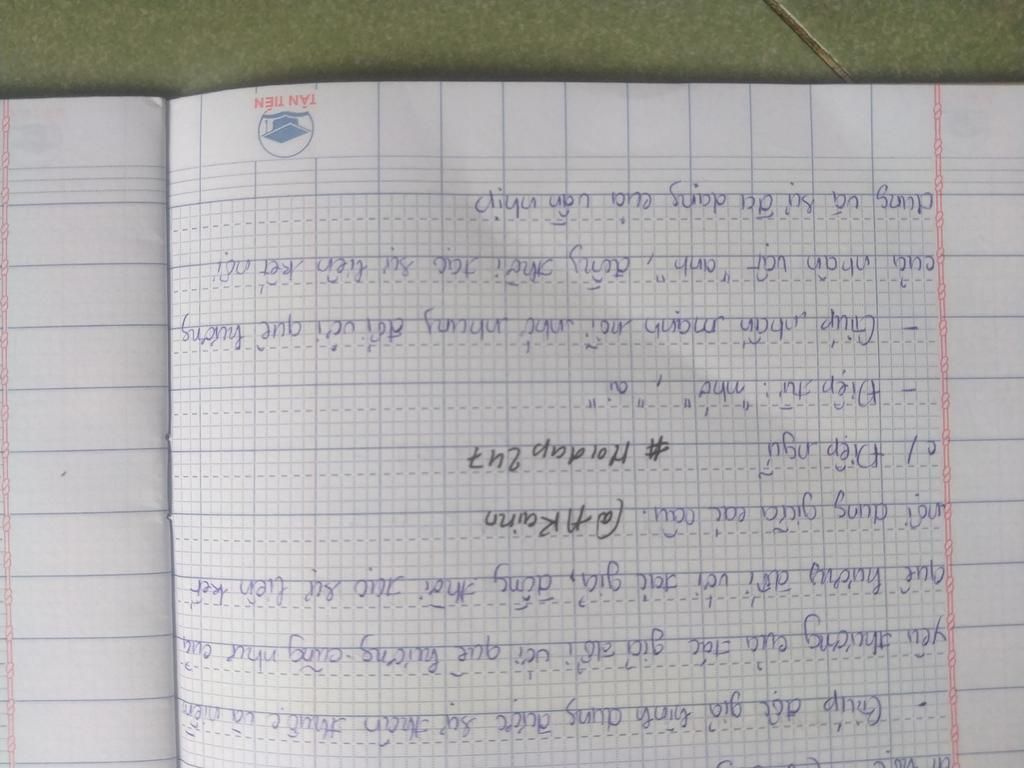 - Giúp đọc giả hình dung được sự thân thuộc và niềm
yêu thương của tác giả đối với quê hương cũng như của
quê hương đối với tác giả, đồng thời tạo sự liên kết
nội dung giữa các câu. @AKainn
c/ Điệp ngữ # Hoidap247
- Điệp từ: "nhớ", "ai"
- Giúp nhấn mạnh nỗi nhớ nhung đối với quê hương
của nhân vật "anh", đồng thời tạo sự liên kết nội
dung và sự đa dạng của vần nhịp
TÂN TIẾN